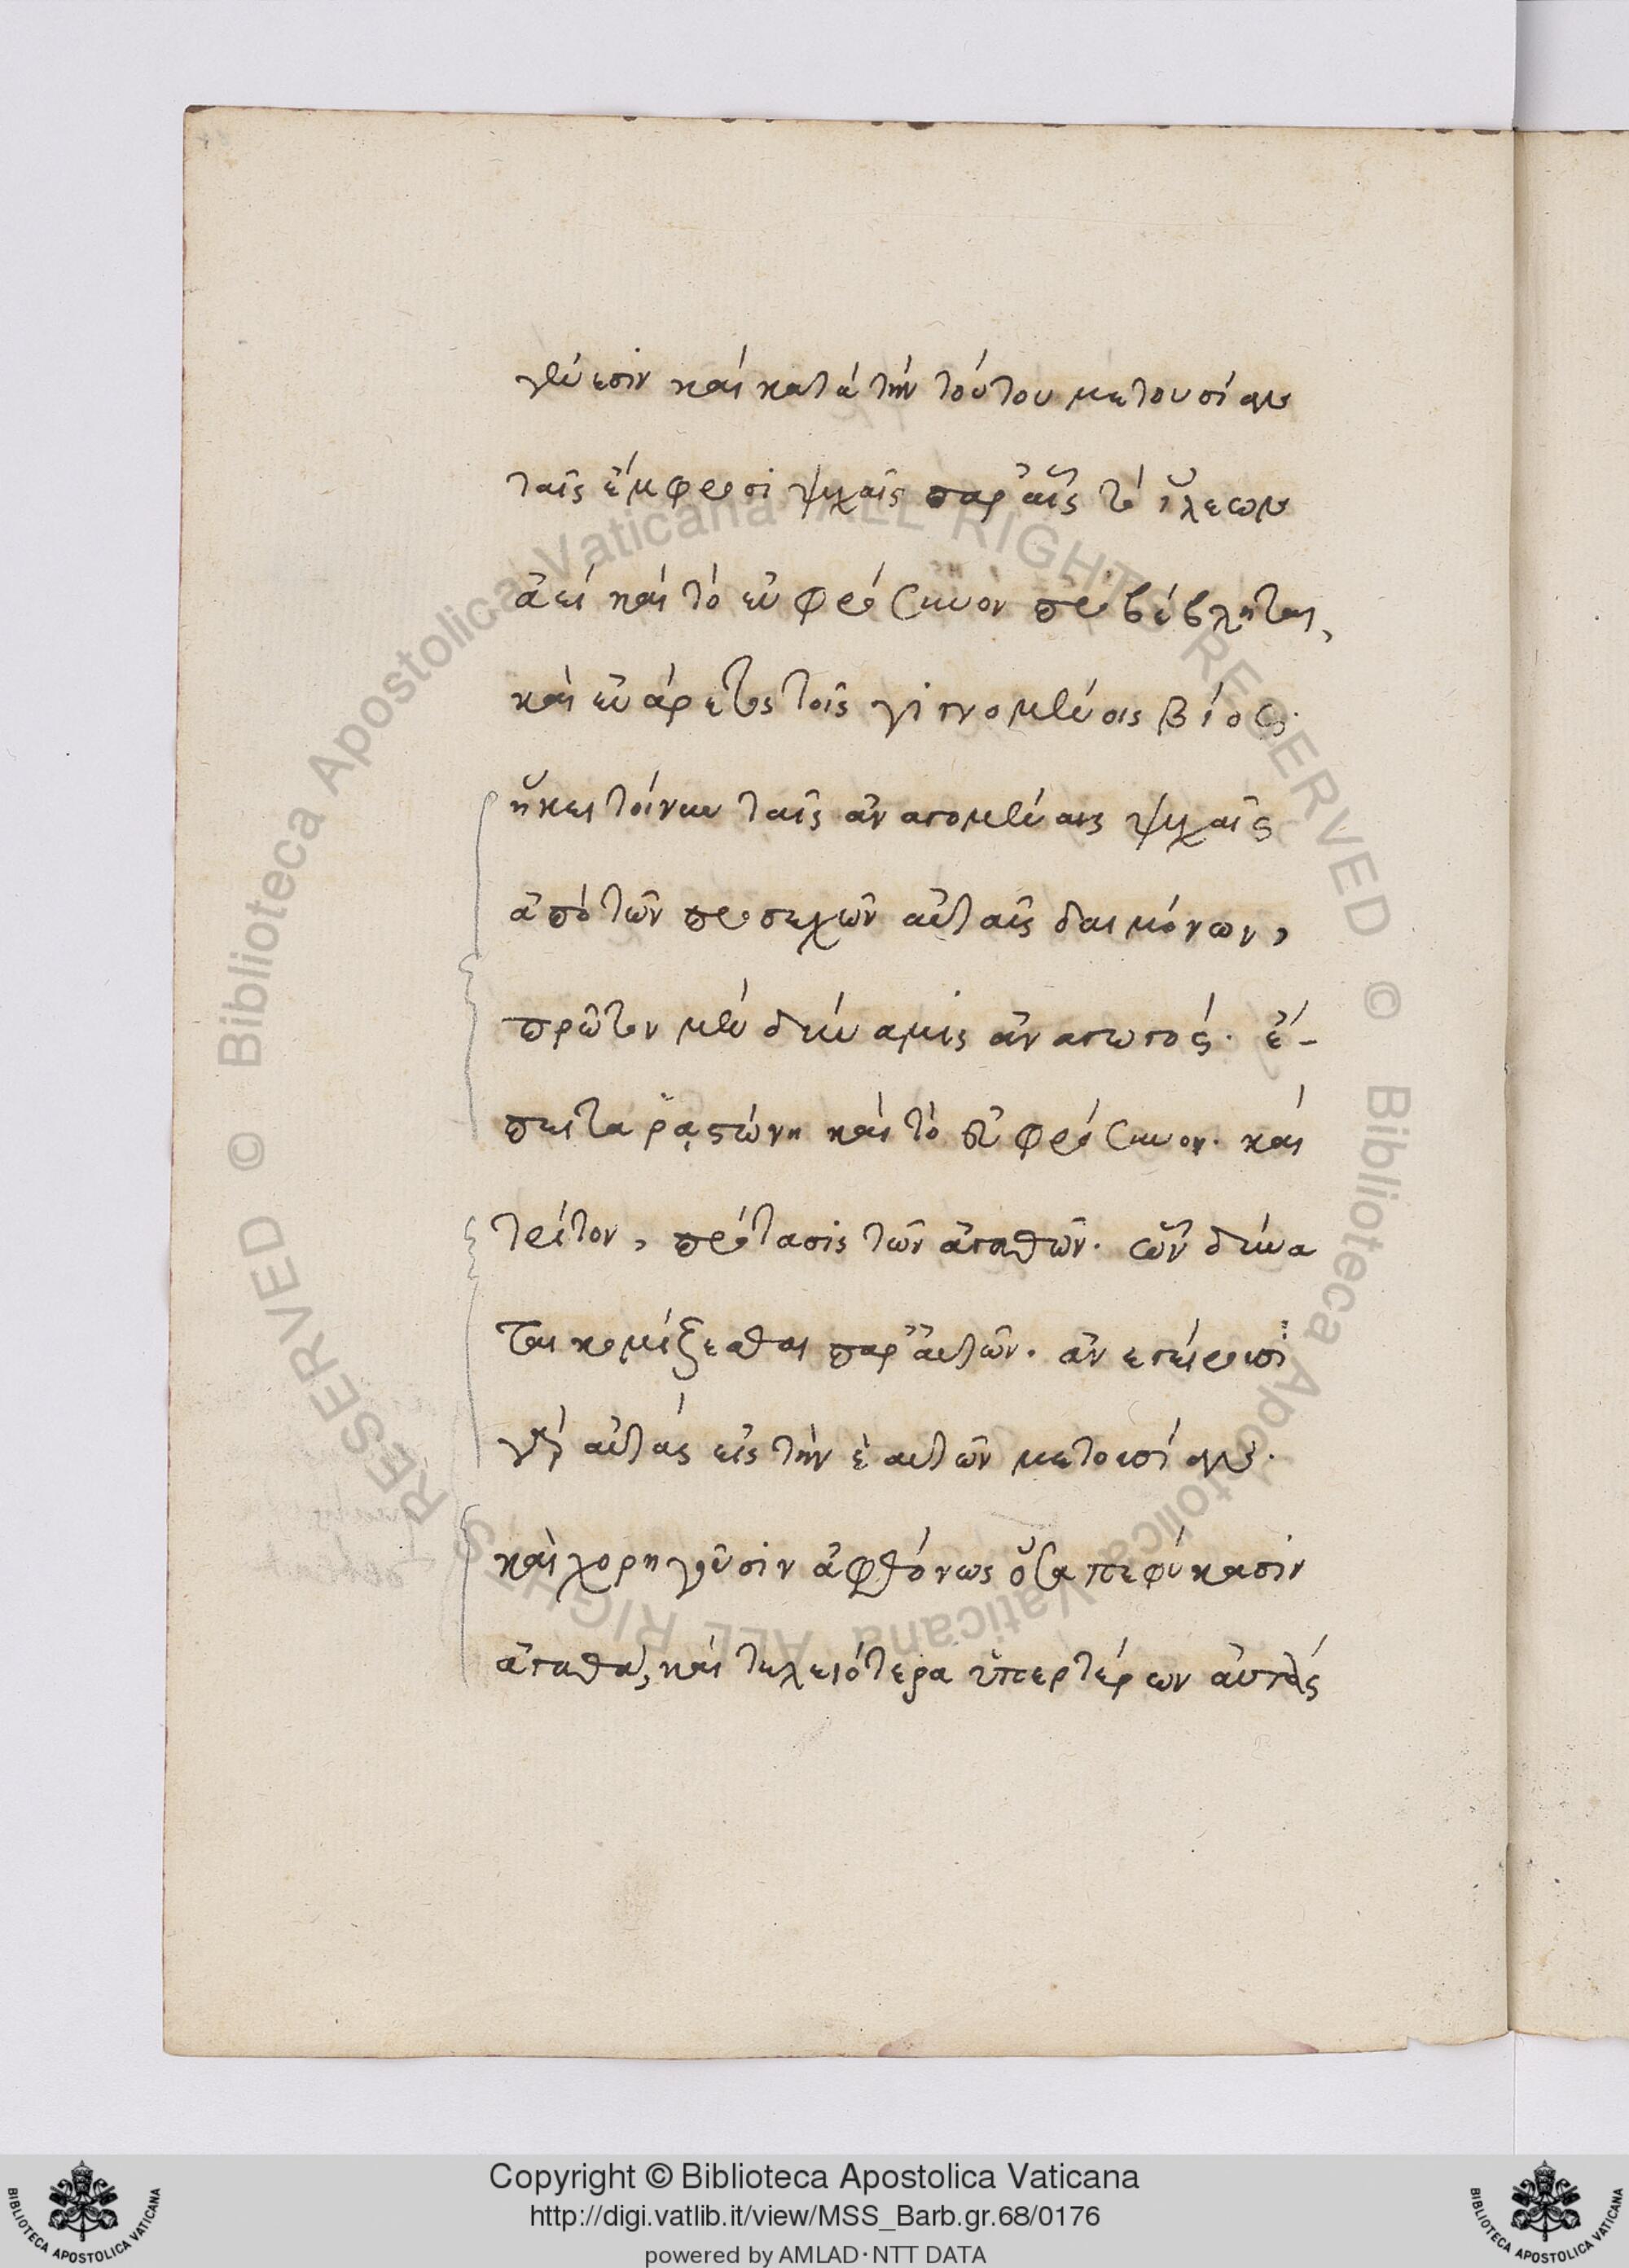 γένεσιν καὶ κατὰ τὴν τούτου μετουσίαν
ταῖς ἔμφροσι ψυχαῖς παρ' αἷς τὸ ἵλεων
ἀεὶ καὶ τὸ εὐφρόσυνον προβέβληται,
καὶ εὐάρετος τοῖς γιγνομένοις βίος.
ἥκει τοίνυν ταῖς ἀναγομέναις ψυχαῖς
ἀπὸ τῶν προσεχῶν αὐταῖς δαιμόνων,
πρῶτον μὲν δύναμις ἀναγωγός. ἔ-
πειτα ῥᾳστώνη καὶ τὸ εὐφρόσυνον. καὶ
τρίτον, πρότασις τῶν ἀγαθῶν. ὧν δύνα
ται κομίζεσθαι παρ' αὐτῶν. ἀνεγείρουσι
γὰρ αὐτὰς εἰς τὴν ἑαυτῶν μετουσίαν.
καὶ χορηγοῦσιν ἀφθόνως ὅσα πεφύκασιν
ἀγαθά, καὶ τελειότερα ὑπερτέρων αὐτὰς
© Biblioteca Apostolica Vaticana ALL RIGHTS RESERVED © Biblioteca Apostolica Vaticana ALL RIGHTS RESERVED
Copyright © Biblioteca Apostolica Vaticana
http://digi.vatlib.it/view/MSS_Barb.gr.68/0176
powered by AMLAD·NTT DATA
BIBLIOTECA APOSTOLICA VATICANA
BIBLIOTECA APOSTOLICA VATICANA